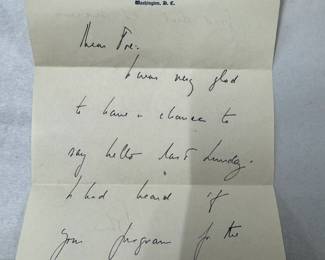 Washington, D. C.
Dear
I was very glad
to have a chance to
say hello last Sunday.
I had heard of
your program for the